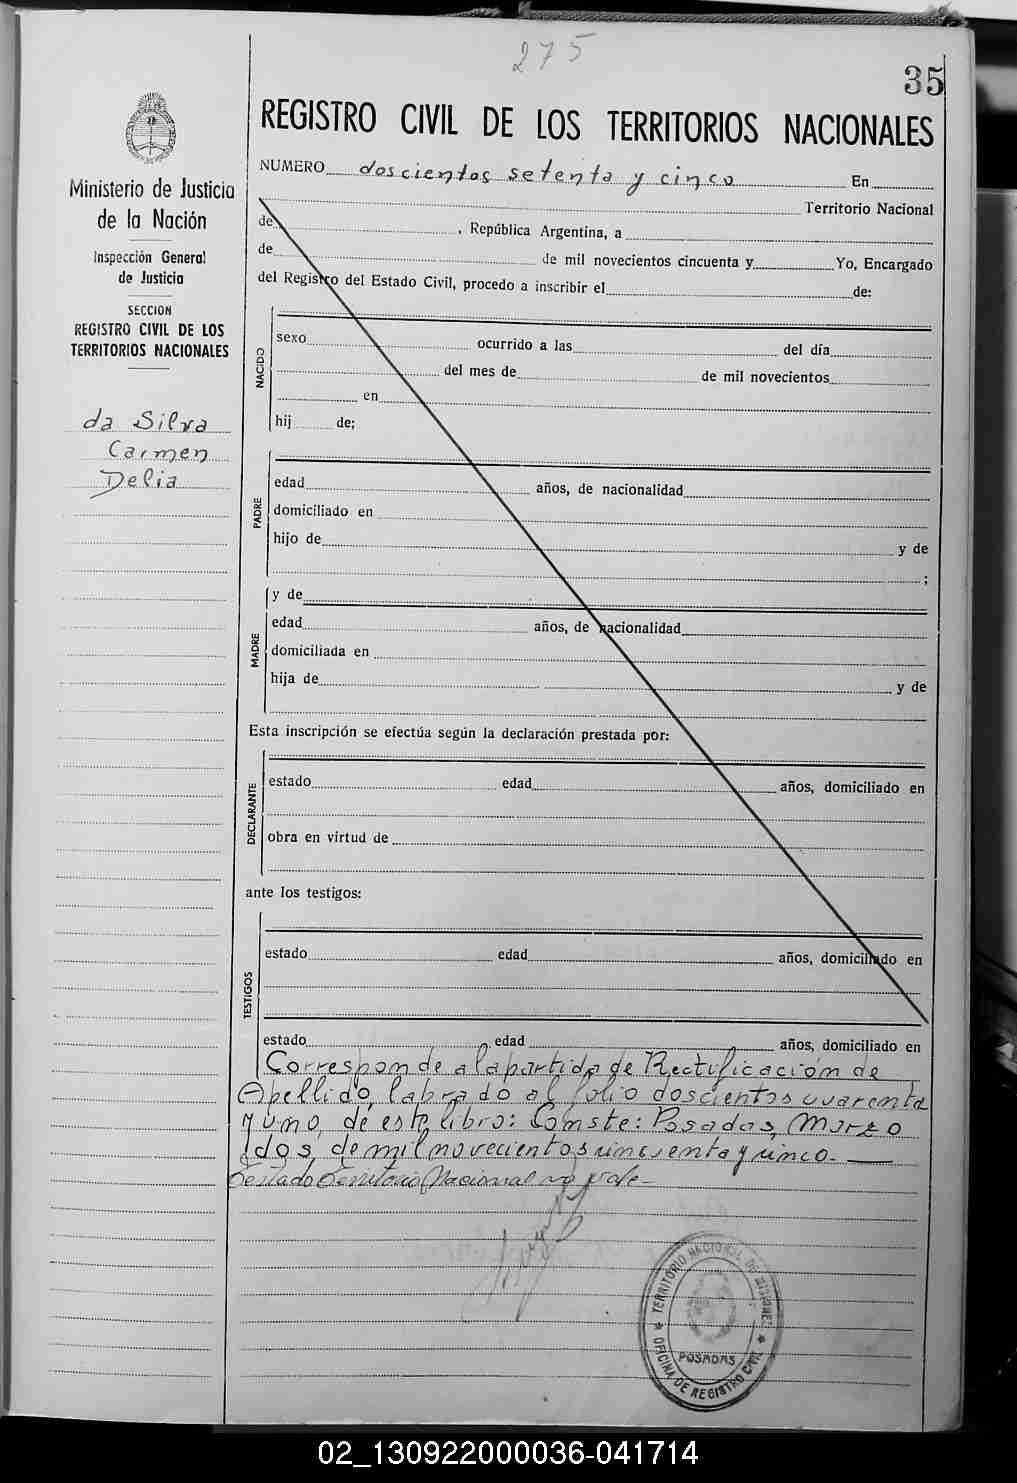 275
35
REGISTRO CIVIL DE LOS TERRITORIOS NACIONALES
NUMERO doscientos setenta y cinco En
Territorio Nacional
de , República Argentina, a
de de mil novecientos cincuenta y Yo, Encargado
del Registro del Estado Civil, procedo a inscribir el de:
Ministerio de Justicia
de la Nación
Inspección General
de Justicia
SECCION
REGISTRO CIVIL DE LOS
TERRITORIOS NACIONALES
da Silva
Carmen
Delia
NACIDO
sexo ocurrido a las del día
del mes de de mil novecientos
en
hij de;
PADRE
edad años, de nacionalidad
domiciliado en
hijo de y de
;
MADRE
y de
edad años, de nacionalidad
domiciliada en
hija de y de
Esta inscripción se efectúa según la declaración prestada por:
DECLARANTE
estado edad años, domiciliado en
obra en virtud de
ante los testigos:
TESTIGOS
estado edad años, domiciliado en
estado edad años, domiciliado en
Corresponde a la partida de Rectificación de
Apellido, labrado al folio doscientos cuarenta
y uno, de este libro: Conste: Posadas, Marzo
dos, de mil novecientos cincuenta y cinco.
Testado Territorio Nacional no vale
TERRITORIO NACIONAL DE MISIONES
POSADAS
OFICINA DE REGISTRO CIVIL
02_130922000036-041714